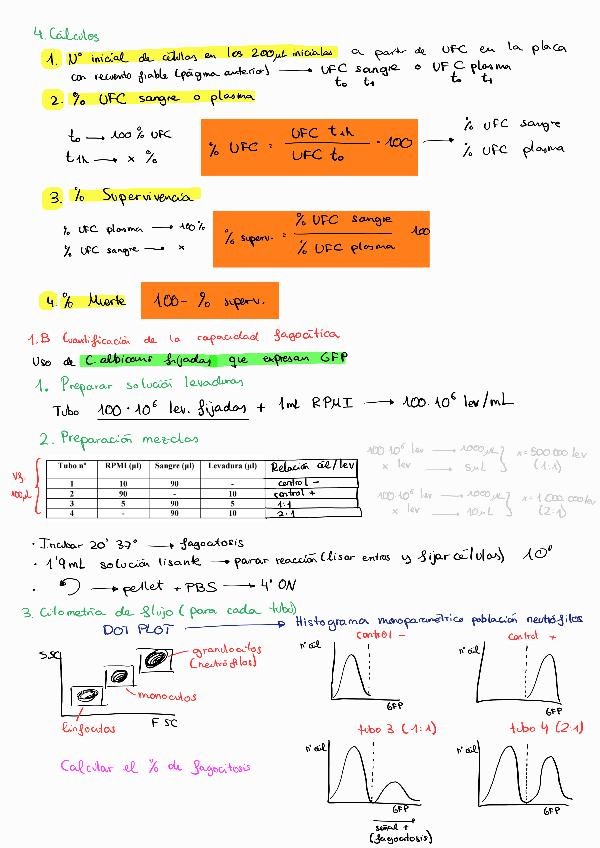 4. Cálculos
1. Nº inicial de células en los 200 µL iniciales a partir de UFC en la placa
con recuento fiable (página anterior) → UFC sangre o UFC plasma
t₀ t₁ t₀ t₁
2. % UFC sangre o plasma
t₀ → 100 % UFC
t1h → x %
% UFC = UFC t1h / UFC t₀ · 100 → % UFC sangre
% UFC plasma
3. % Supervivencia
% UFC plasma → 100%
% UFC sangre → x
% superv. = % UFC sangre / % UFC plasma · 100
4. % Muerte 100 - % superv.
1.B Cuantificación de la capacidad fagocítica
Uso de C. albicans fijadas que expresan GFP
1. Preparar solución levaduras
Tubo 100·10⁶ lev. fijadas + 1ml RPMI → 100·10⁶ lev/mL
2. Preparación mezclas
Tubo nº RPMI (µl) Sangre (µl) Levadura (µl) Relación cél/lev
1 10 90 - control -
2 90 - 10 control +
3 5 90 5 1:1
4 - 90 10 2:1
Vf.
100µL
100·10⁶ lev → 1000µL
x lev → 5µL
x = 500 000 lev
(1:1)
100·10⁶ lev → 1000µL
x lev → 10µL
x = 1 000 000 lev
(2:1)
· Incubar 20' 37º → fagocitosis
· 1'9mL solución lisante → parar reacción (lisar eritros y fijar células) 10'
· → pellet + PBS → 4º ON
3. Citometría de flujo (para cada tubo)
DOT PLOT → Histograma monoparamétrico población neutrófilos
SSC
granulocitos
(neutrófilos)
monocitos
linfocitos
FSC
control -
nº cél
GFP
control +
nº cél
GFP
tubo 3 (1:1)
nº cél
GFP
señal +
(fagocitosis)
tubo 4 (2:1)
nº cél
GFP
Calcular el % de fagocitosis